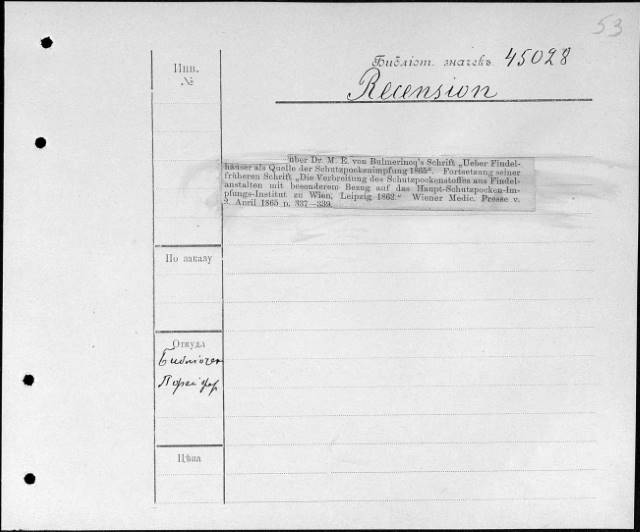 53
Инв.
№
Библіот. значекъ 45028
Recension
über Dr. M. E. von Bulmerincq's Schrift „Ueber Findel-
häuser als Quelle der Schutzpockenimpfung 1865". Fortsetzung seiner
früheren Schrift „Die Verbreitung des Schutzpockenstoffes aus Findel-
anstalten mit besonderem Bezug auf das Haupt-Schutzpocken-Im-
pfungs-Institut zu Wien, Leipzig 1862." Wiener Medic. Presse v.
2. April 1865 n. 337—339.
По заказу
Откуда
Библіотек
Цѣна